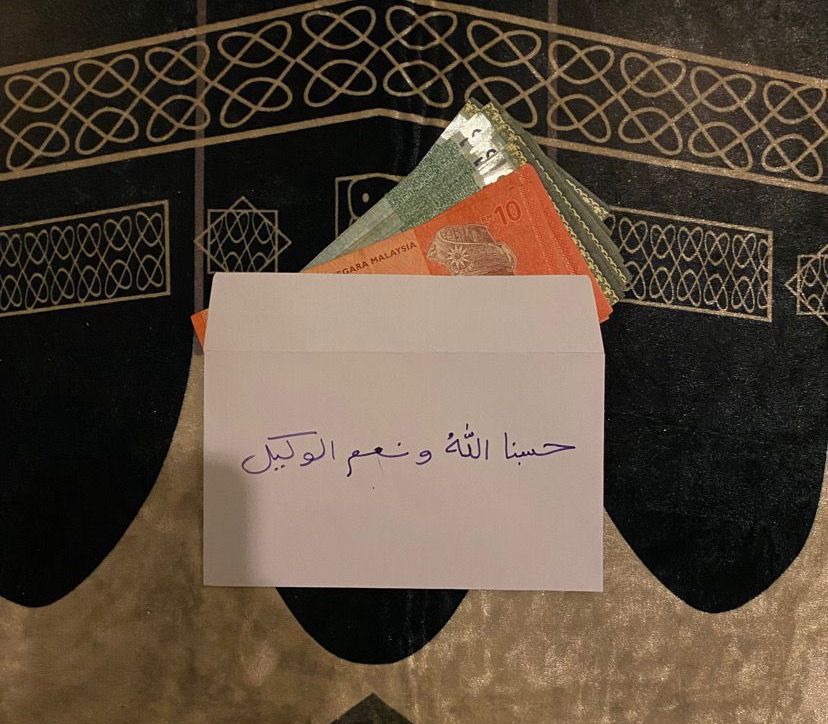 10
EGARA MALAYSIA
حسبنا اللّٰهُ و نعم الوكيل